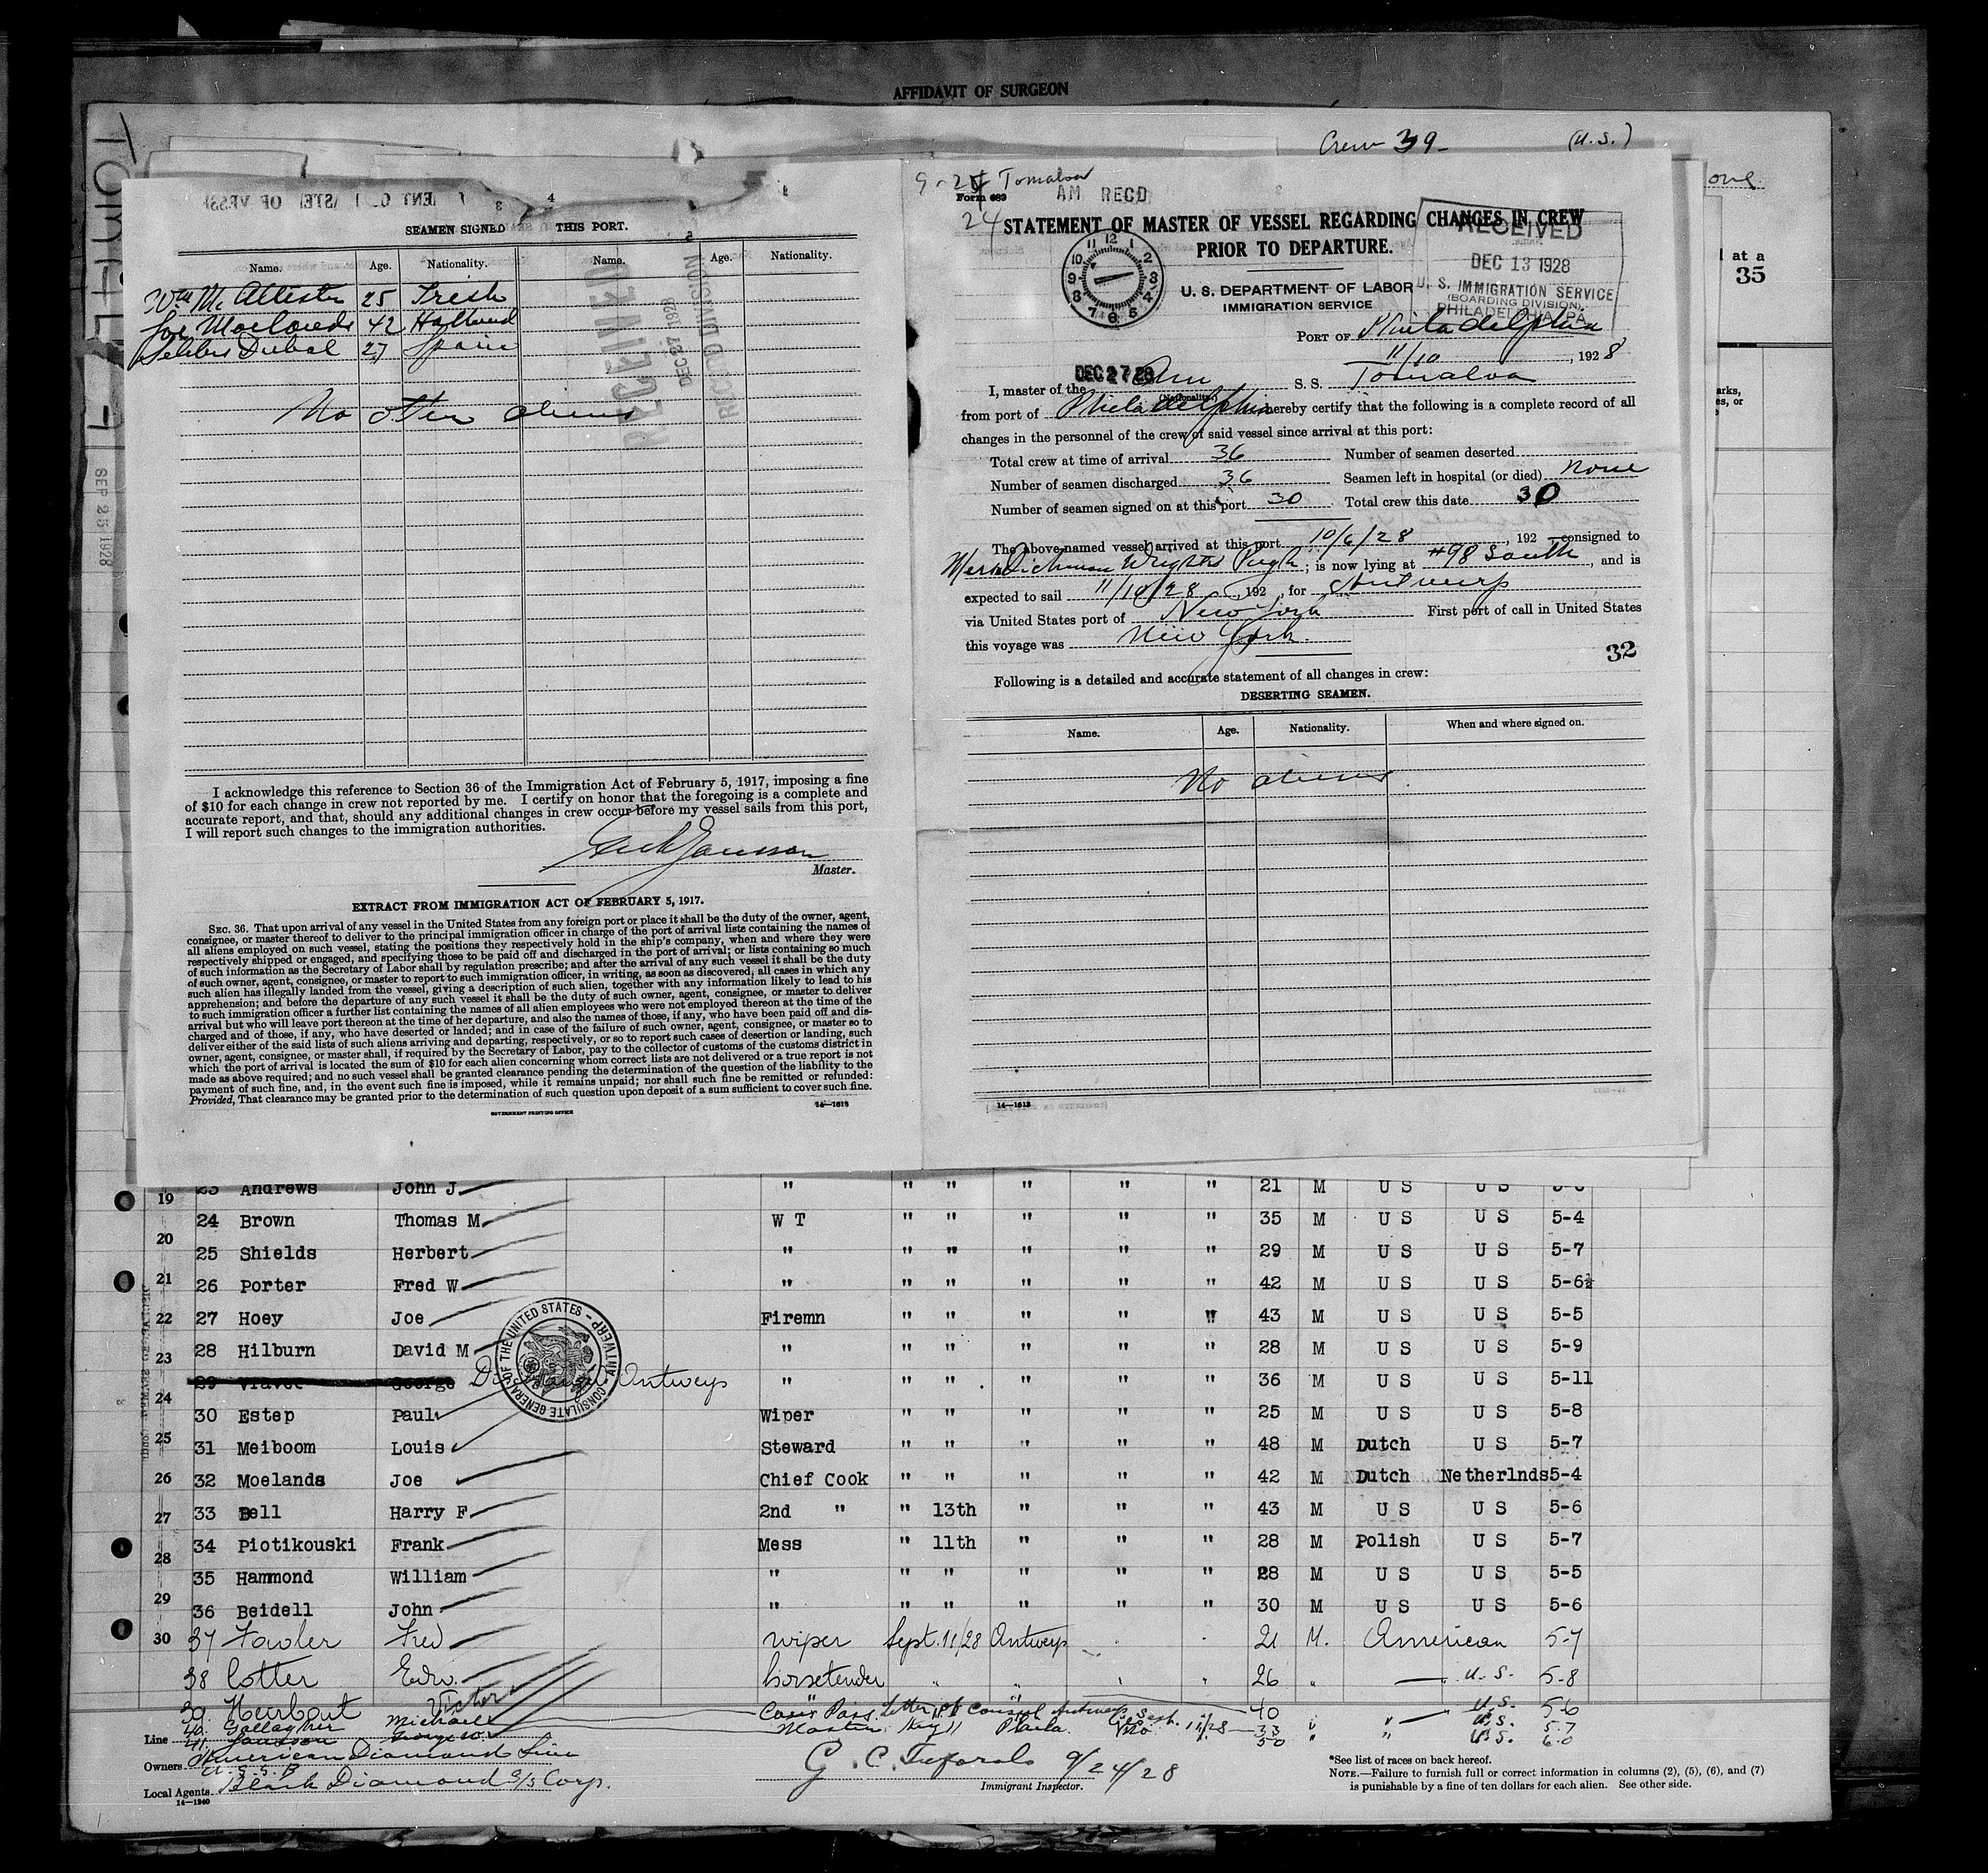 AFFIDAVIT OF SURGEON
Crew 39- (U.S.)
SEP 25 1928
at a
35
SEAMEN SIGNED THIS PORT.
Name. Age. Nationality. Name. Age. Nationality.
Wm McAllister 25 Irish
Joe Moelands 42 Holland
Dubal 27 Spain
No other aliens
RECEIVED
DEC 27 1928
RECORD DIVISION
I acknowledge this reference to Section 36 of the Immigration Act of February 5, 1917, imposing a fine
of $10 for each change in crew not reported by me. I certify on honor that the foregoing is a complete and
accurate report, and that, should any additional changes in crew occur before my vessel sails from this port,
I will report such changes to the immigration authorities.
Master.
EXTRACT FROM IMMIGRATION ACT OF FEBRUARY 5, 1917.
SEC. 36. That upon arrival of any vessel in the United States from any foreign port or place it shall be the duty of the owner, agent,
consignee, or master thereof to deliver to the principal immigration officer in charge of the port of arrival lists containing the names of
all aliens employed on such vessel, stating the positions they respectively hold in the ship's company, when and where they were
respectively shipped or engaged, and specifying those to be paid off and discharged in the port of arrival; or lists containing so much
of such information as the Secretary of Labor shall by regulation prescribe; and after the arrival of any such vessel it shall be the duty
of such owner, agent, consignee, or master to report to such immigration officer, in writing, as soon as discovered, all cases in which any
such alien has illegally landed from the vessel, giving a description of such alien, together with any information likely to lead to his
apprehension; and before the departure of any such vessel it shall be the duty of such owner, agent, consignee, or master to deliver
to such immigration officer a further list containing the names of all alien employees who were not employed thereon at the time of the
arrival but who will leave port thereon at the time of her departure, and also the names of those, if any, who have been paid off and dis-
charged and of those, if any, who have deserted or landed; and in case of the failure of such owner, agent, consignee, or master so to
deliver either of the said lists of such aliens arriving and departing, respectively, or so to report such cases of desertion or landing, such
owner, agent, consignee, or master shall, if required by the Secretary of Labor, pay to the collector of customs of the customs district in
which the port of arrival is located the sum of $10 for each alien concerning whom correct lists are not delivered or a true report is not
made as above required; and no such vessel shall be granted clearance pending the determination of the question of the liability to the
payment of such fine, and, in the event such fine is imposed, while it remains unpaid; nor shall such fine be remitted or refunded:
Provided, That clearance may be granted prior to the determination of such question upon deposit of a sum sufficient to cover such fine.
GOVERNMENT PRINTING OFFICE
14—1613
9-24 Tomalva
Form 689 AM RECD
24
STATEMENT OF MASTER OF VESSEL REGARDING CHANGES IN CREW
PRIOR TO DEPARTURE.
RECEIVED
DEC 13 1928
U. S. IMMIGRATION SERVICE
(BOARDING DIVISION)
PHILADELPHIA, PA.
U. S. DEPARTMENT OF LABOR
IMMIGRATION SERVICE
PORT OF Philadelphia
11/10, 1928
DEC 27 28
I, master of the Am S. S. Tomalva
(Nationality.)
from port of Philadelphia hereby certify that the following is a complete record of all
changes in the personnel of the crew of said vessel since arrival at this port:
Total crew at time of arrival 36 Number of seamen deserted
Number of seamen discharged 36 Seamen left in hospital (or died) None
Number of seamen signed on at this port 30 Total crew this date 30
The above-named vessel arrived at this port 10/6/28, 192 , consigned to
Pugh; is now lying at #98 South, and is
expected to sail 11/10/28, 192 , for Antwerp
via United States port of New York First port of call in United States
this voyage was New York.
32
Following is a detailed and accurate statement of all changes in crew:
DESERTING SEAMEN.
Name. Age. Nationality. When and where signed on.
No aliens
14—1613
19 23 Andrews John J " " " " " " 21 M U S U S
20 24 Brown Thomas M W T " " " " " 35 M U S U S 5-4
25 Shields Herbert " " " " " " 29 M U S U S 5-7
21 26 Porter Fred W " " " " " " 42 M U S U S 5-6½
22 27 Hoey Joe Firemn " " " " " 43 M U S U S 5-5
23 28 Hilburn David M " " " " " " 28 M U S U S 5-9
29 George Antwerp " " " " " " 36 M U S U S 5-11
CONSULATE GENERAL OF THE UNITED STATES - ANTWERP
24 30 Estep Paul Wiper " " " " " 25 M U S U S 5-8
25 31 Meiboom Louis Steward " " " " " 48 M Dutch U S 5-7
26 32 Moelands Joe Chief Cook " " " " " 42 M Dutch Netherlnds 5-4
27 33 Bell Harry F 2nd " " 13th " " " 43 M U S U S 5-6
28 34 Piotikouski Frank Mess " 11th " " " 28 M Polish U S 5-7
35 Hammond William " " " " " " 28 M U S U S 5-5
29 36 Beidell John " " " " " " 30 M U S U S 5-6
30 37 Fowler Fred wiper Sept. 11/28 Antwerp 21 M. American 5-7
38 Cotter Edw. horsetender " " " " 26 " U.S. 5-8
39. Heirbout Victor 40 U.S. 5-6
40. Gallagher Michael 33 " " U.S. 5.7
41. Jansson George W. Master 50 " " U.S. 6.0
Line American Diamond Line
Owners U.S.S.B
Local Agents Black Diamond S/S Corp.
14—1240
9/24/28
Immigrant Inspector.
*See list of races on back hereof.
NOTE.—Failure to furnish full or correct information in columns (2), (5), (6), and (7)
is punishable by a fine of ten dollars for each alien. See other side.